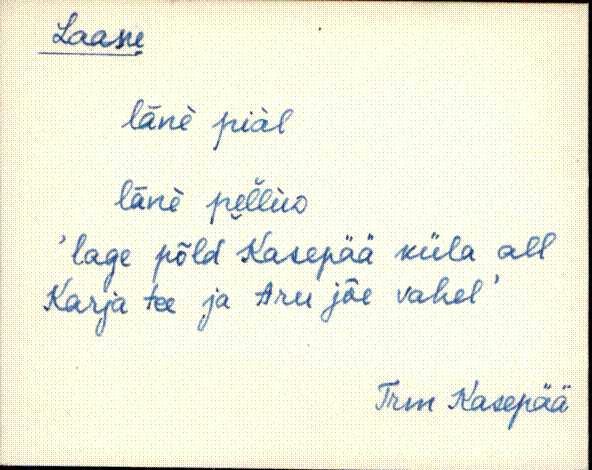 Laane
lānè piäl
lānè pellùo
'lage põld Kasepää küla all
Karja tee ja Aru jõe vahel'
Trm Kasepää